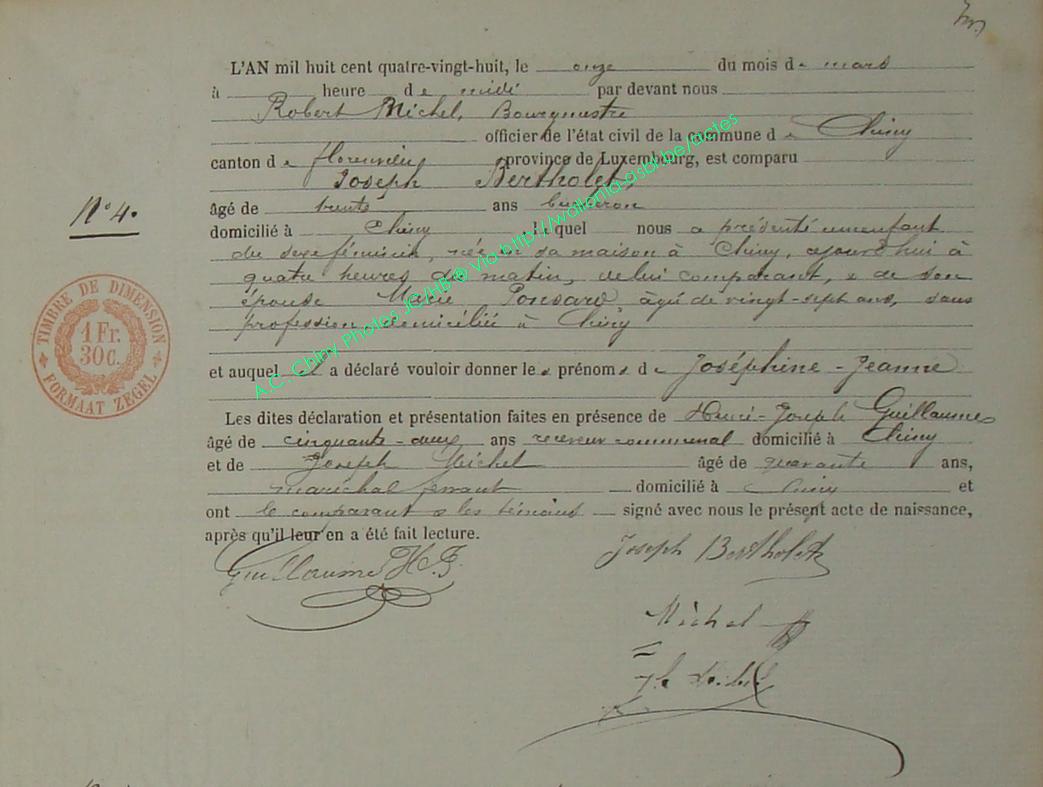 L'AN mil huit cent quatre-vingt-huit, le onze du mois de mars
à heure de midi par devant nous
Robert Michel, Bourgmestre
officier de l'état civil de la commune de Chiny
canton de florenville province de Luxembourg, est comparu
Joseph Bertholet
N° 4.
âgé de trente ans bucheron
domicilié à Chiny lequel nous a présenté un enfant
du sexe féminin, née en sa maison à Chiny, cejourd'hui à
quatre heures du matin, de lui comparant, & de son
épouse Marie Ponsard âgée de vingt-sept ans, sans
profession, domiciliée à Chiny
TIMBRE DE DIMENSION
1 Fr.
30 C.
FORMAAT ZEGEL
et auquel il a déclaré vouloir donner les prénoms de Joséphine-Jeanne
Les dites déclaration et présentation faites en présence de Henri-Joseph Guillaume
âgé de cinquante-deux ans receveur communal domicilié à Chiny
et de Joseph Michel âgé de quarante ans,
maréchal ferrant domicilié à Chiny et
ont le comparant & les témoins signé avec nous le présent acte de naissance,
après qu'il leur en a été fait lecture.
Guillaume H. J.
Joseph Bertholet
Michel
A.C. Chiny Photos JC/HB © via http://wallonia-asbl.be/actes